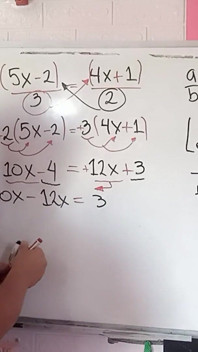 (5x-2) = (4x+1) a
3 2 b
2(5x-2) = +3(4x+1)
10x-4 = +12x+3
0x-12x = 3